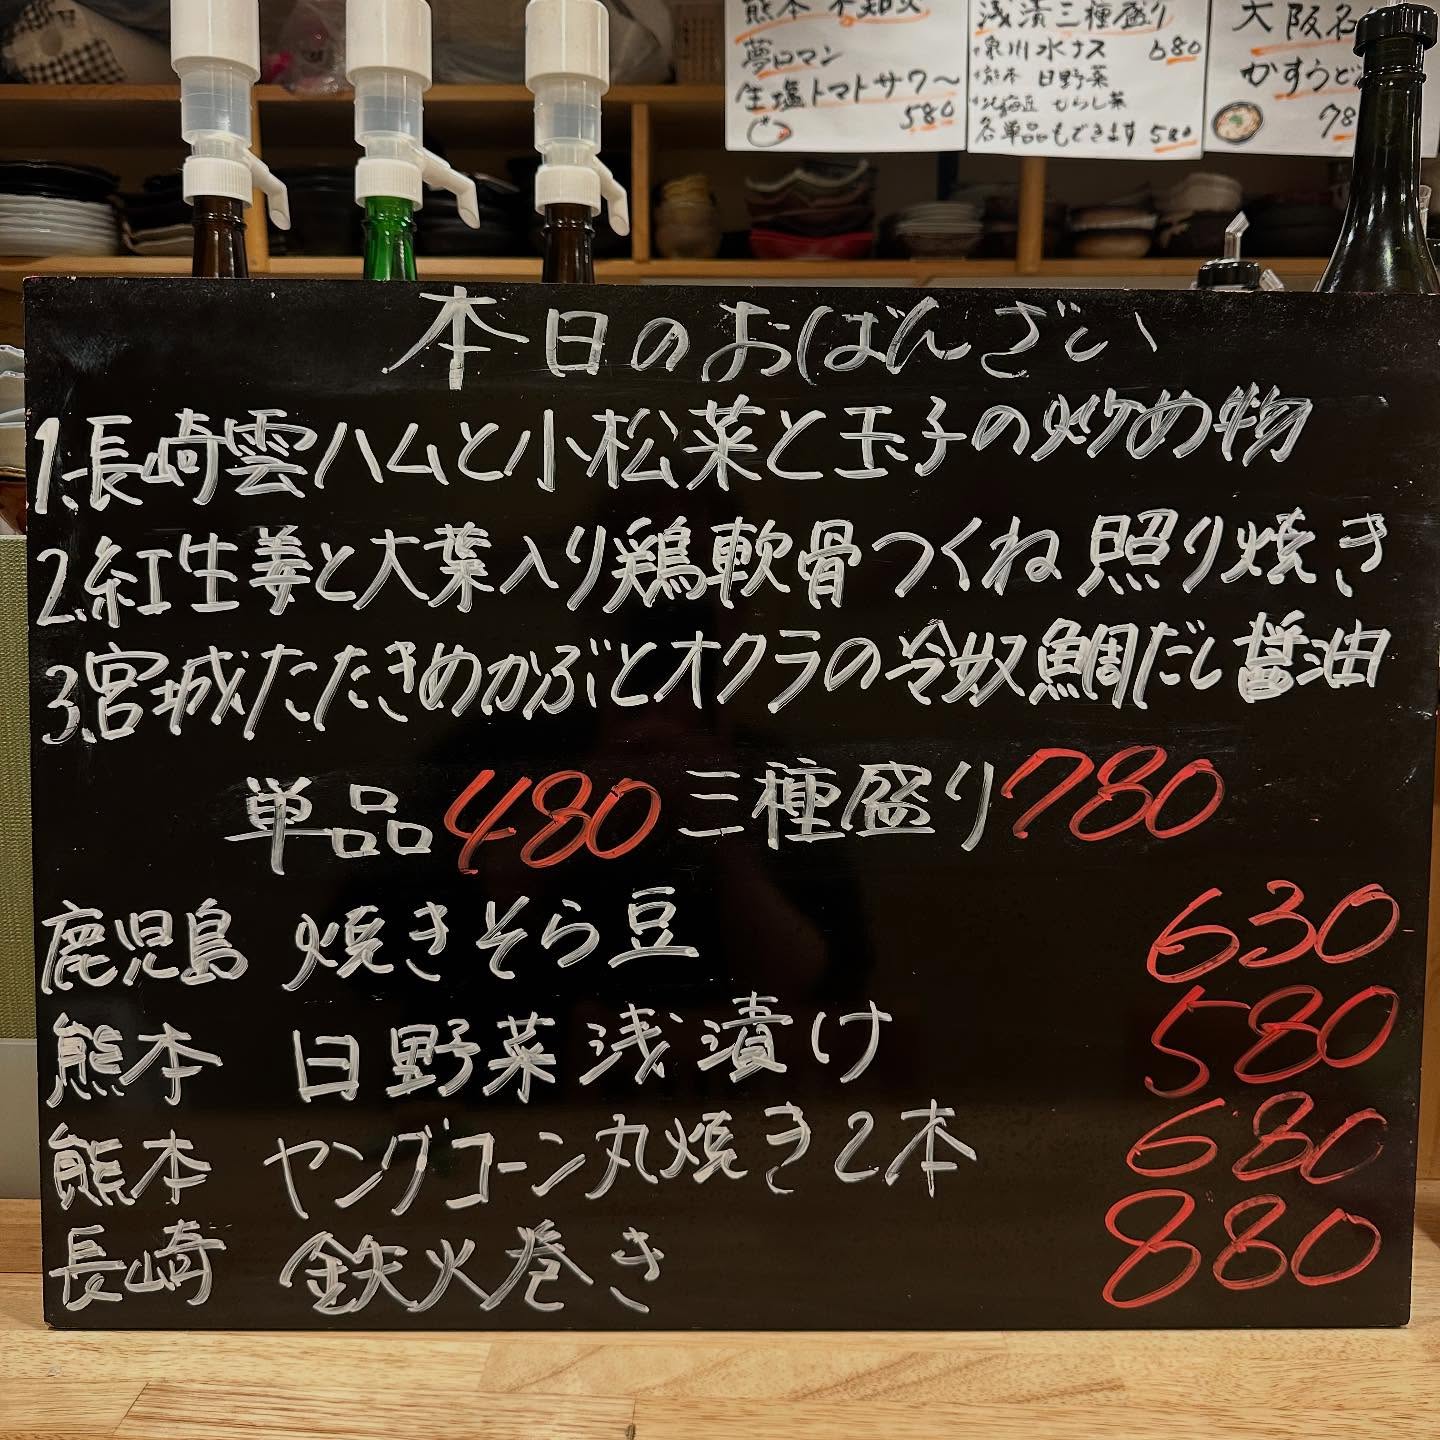 熊本 不知火
夢ロマン
生塩トマトサワ〜
580
浅漬三種盛り
・泉川水ナス 680
・熊本 日野菜
むらし菜
各単品もできます 580
大阪名
かすうど
78
本日のおばんざい
1.長崎雲ハムと小松菜と玉子の炒め物
2.紅生姜と大葉入り鶏軟骨つくね照り焼き
3.宮城たたきめかぶとオクラの冷奴鯛だし醤油
単品480 三種盛り780
鹿児島 焼きそら豆 630
熊本 日野菜浅漬け 580
熊本 ヤングコーン丸焼き2本 680
長崎 鉄火巻き 880